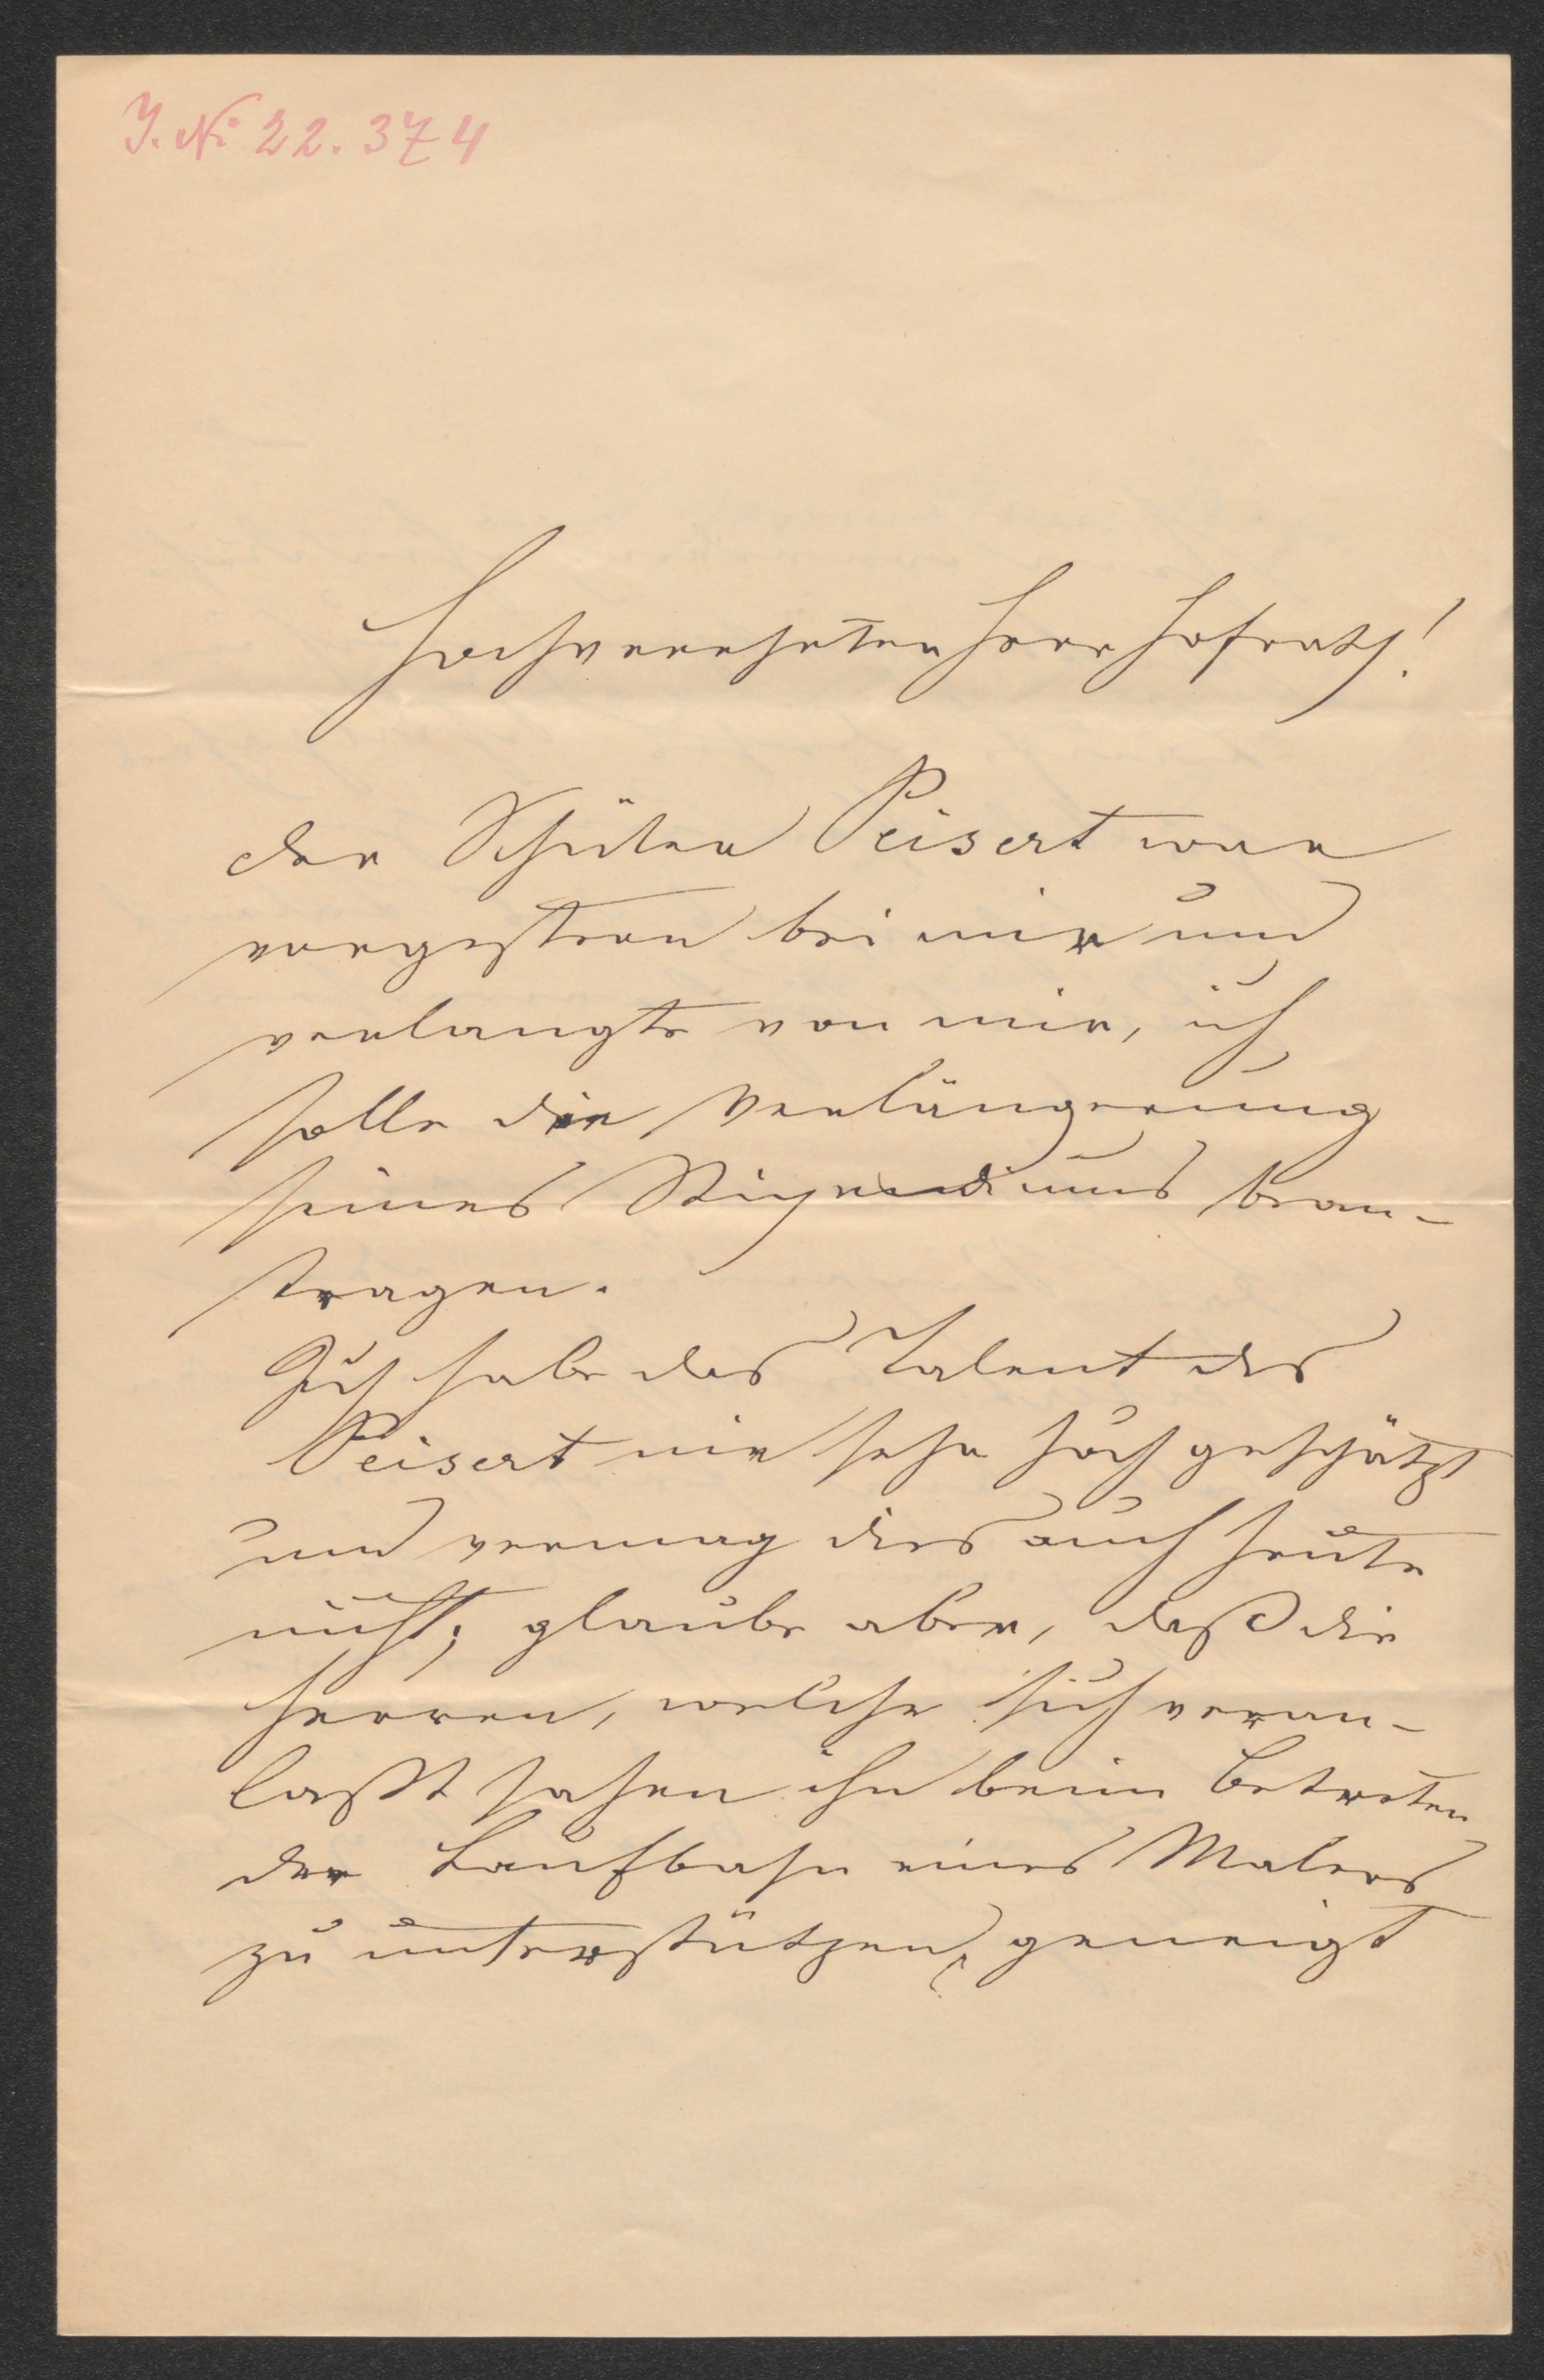 J. N: 22.374
Hochverehrter Herr Hofrath!
der Schüler Peisert war
vorgestern bei mir und
verlangte von mir, ich
solle die Verlängerung
seines Stipendiums bean-
tragen.
Ich habe das Talent des
Peisert nie sehr hoch geschätzt
und vermag dies auch heute
nicht; glaube aber, daß die
Herren, welche sich veran-
laßt sahen ihn beim Betreten
der Laufbahn eines Malers
zu unterstützen, geneigt